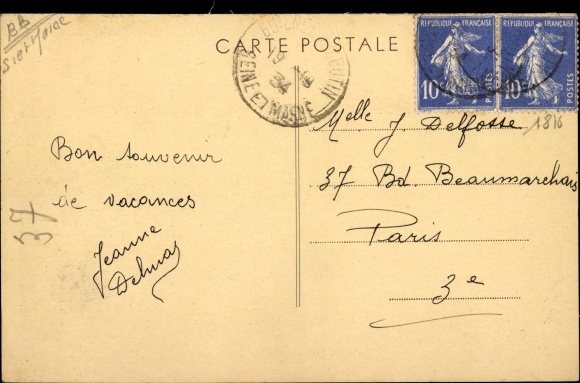 BB
S et Marne
CARTE POSTALE
REPUBLIQUE FRANÇAISE
10c
POSTES
REPUBLIQUE FRANÇAISE
10c
POSTES
34
SEINE ET MARNE
Melle J Delfosse
1816
37 Bd. Beaumarchais
Paris
3e
Bon souvenir
de vacances
Jeanne
Delmas
37